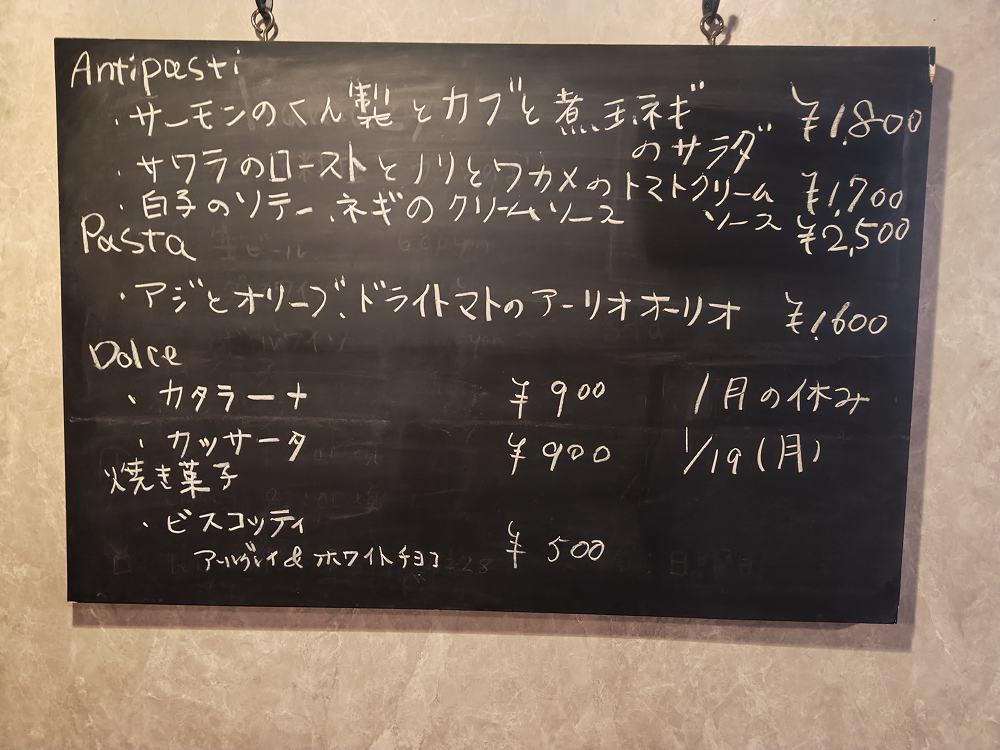 Antipasti
・サーモンのくん製とカブと煮玉ネギのサラダ ¥1,800
・サワラのローストとノリとワカメのトマトクリームソース ¥1,700
・白子のソテー、ネギのクリームソース ¥2,500
Pasta
・アジとオリーブ、ドライトマトのアーリオオーリオ ¥1,600
Dolce
・カタラーナ ¥900
・カッサータ ¥900
焼き菓子
・ビスコッティ ¥500
アールグレイ&ホワイトチョコ
1月の休み
1/19(月)